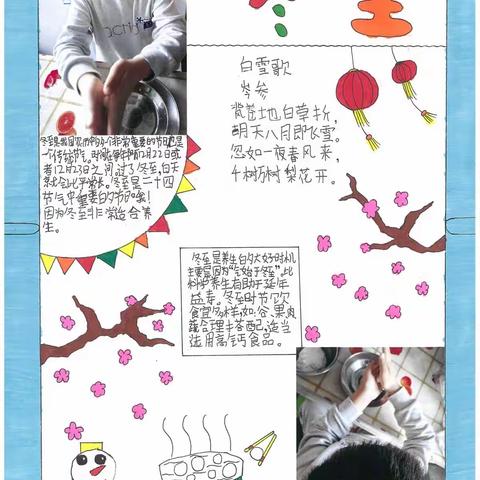 白雪歌
岑参
背苍地白草折，
胡天八月即飞雪。
忽如一夜春风来，
千树万树梨花开。
冬至是我国农历中的一个非常重要的节日也是
一个传统节气。时间在每年的12月22日或
者12月23日之间，过了冬至，白天
就会比平常长。冬至是二十四
节气中重要的节日哦！
因为冬至非常适合养
生。
冬至是养生的大好时机
主要是因为“气始于冬至”。比
科学养生有助于延年
益寿。冬至时节饮
食宜多样，如谷、果、肉
蔬合理丰搭配，适当
选用高钙食品。